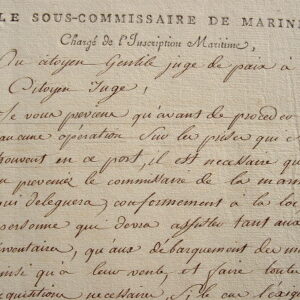 LE SOUS-COMMISSAIRE DE MARINE
Chargé de l'Inscription Maritime,
Au citoyen Gentile juge de paix à
Citoyen Juge,
Je vous préviens qu'avant de procéder
aucune opération sur les prises qui
trouvent en ce port, il est nécessaire que
prevenez le commissaire de la
qui déleguera, conformement à la loi
personne qui devra assister tant aux
inventaire, qu'aux débarquement des
ainsi qu'a leur vente, et faire toute
requisitions necessaire. Si le cas l'exige